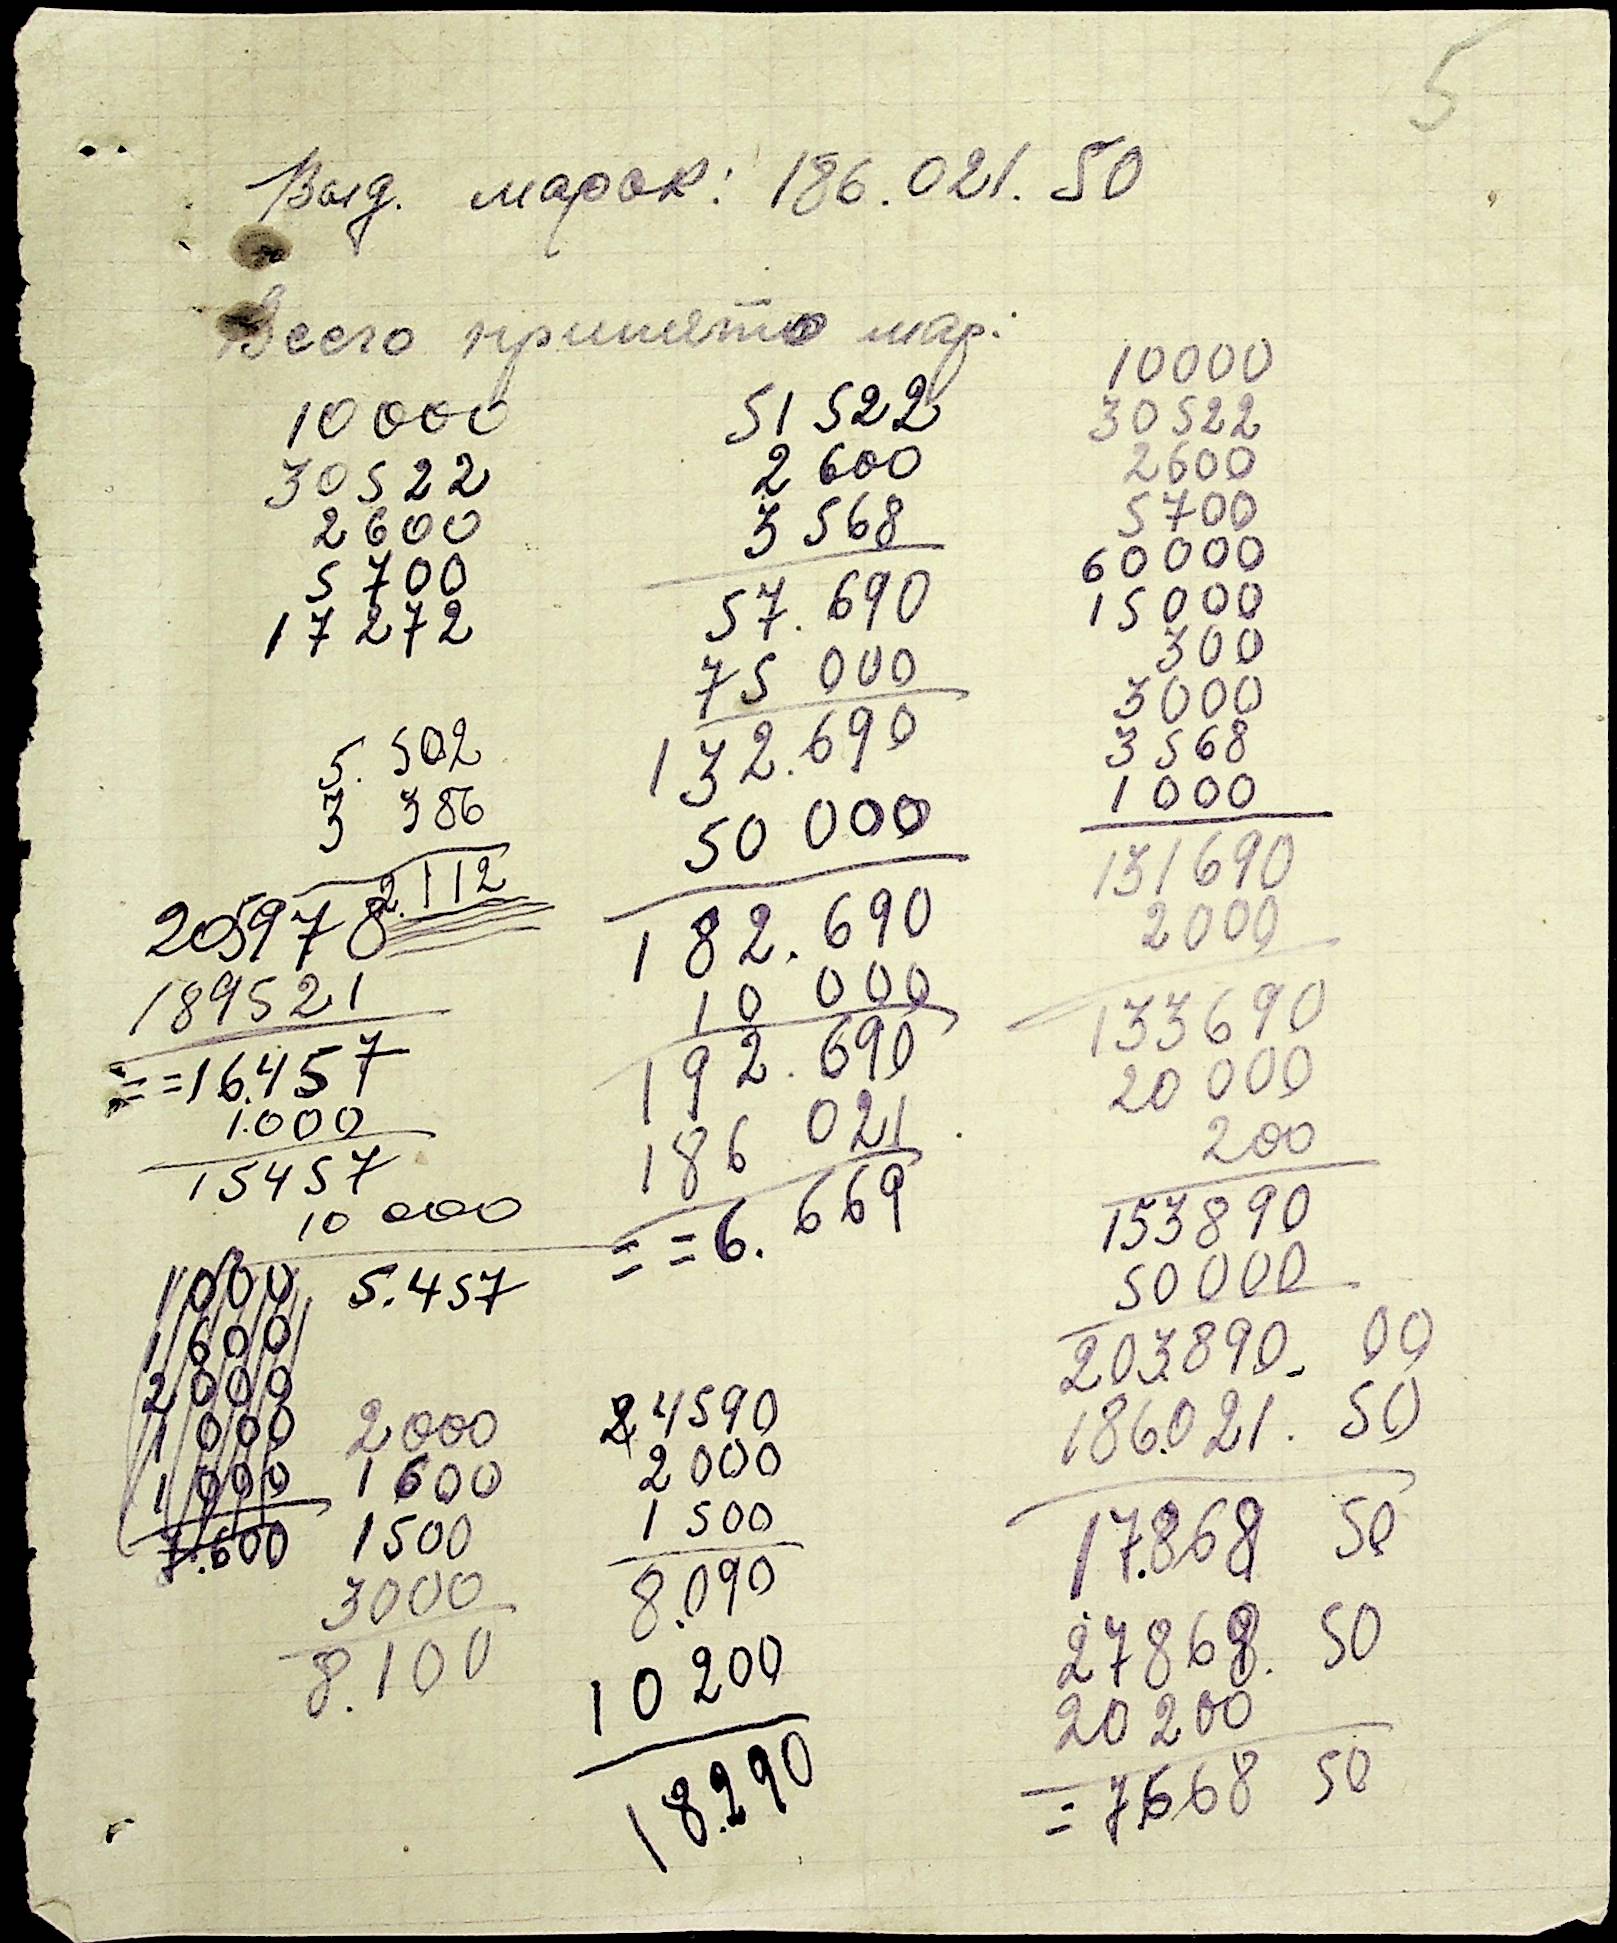 5
Выд. марок: 186.021.50
Всего принято мар:
10000
30522
2600
5700
17272
5.502
3 386
2.112
205978
189521
==16.457
1.000
15457
10 000
5.457
1000
1600
2000
1000
1000
7.600
2000
1600
1500
3000
8.100
51522
2600
3568
57.690
75 000
132.690
50 000
182.690
10 000
192.690
186 021
==6.669
4590
2000
1500
8.090
10 200
18.290
10000
30522
2600
5700
60000
15000
300
3000
3568
1000
131690
2000
133690
20 000
200
153890
50000
203.890. 00
186.021. 50
17.868 50
27868. 50
20200
=7.668 50